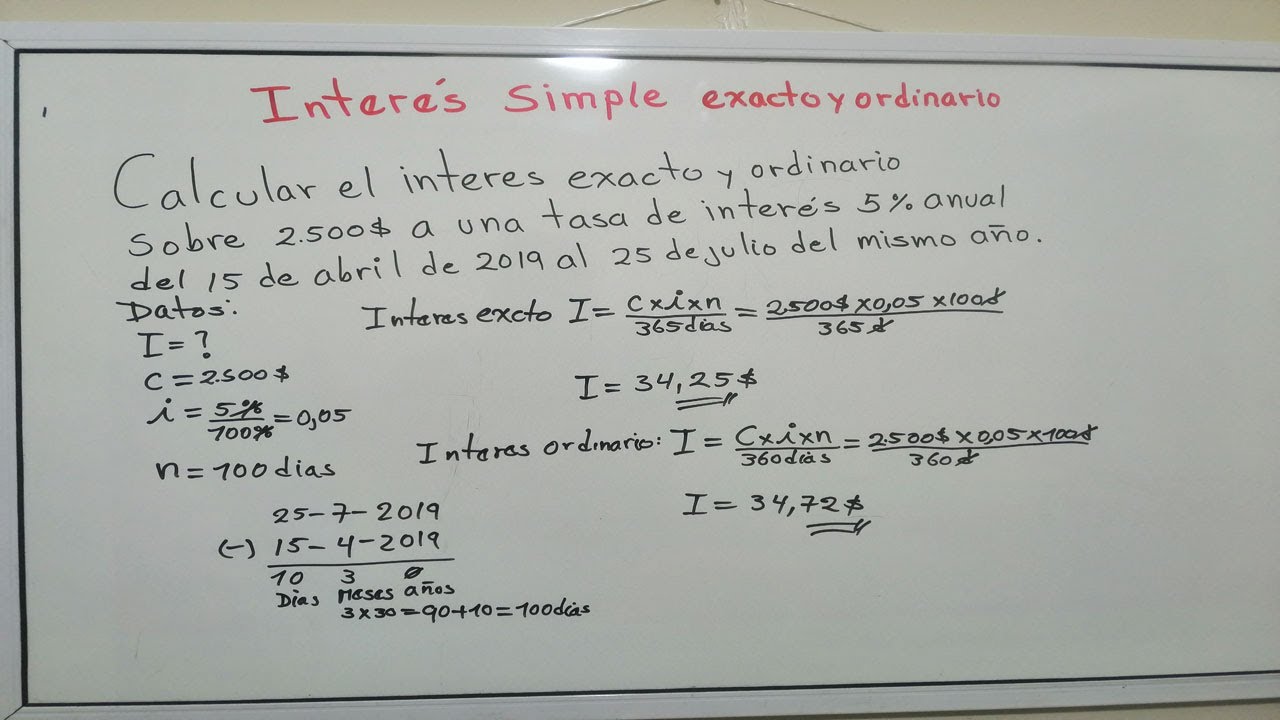 Interés Simple exacto y ordinario
Calcular el interes exacto y ordinario
Sobre 2.500$ a una tasa de interés 5% anual
del 15 de abril de 2019 al 25 de julio del mismo año.
Datos:
I = ?
C = 2.500$
i = 5% / 100% = 0,05
n = 100 dias
25-7-2019
(-) 15-4-2019
10 3 0
Dias Meses años
3x30=90+10=100dias
Interes excto I = Cxixn / 365dias = 2.500$ x 0,05 x 100d / 365 d
I = 34,25$
Interes ordinario: I = Cxixn / 360dias = 2.500$ x 0,05 x 100d / 360 d
I = 34,72$